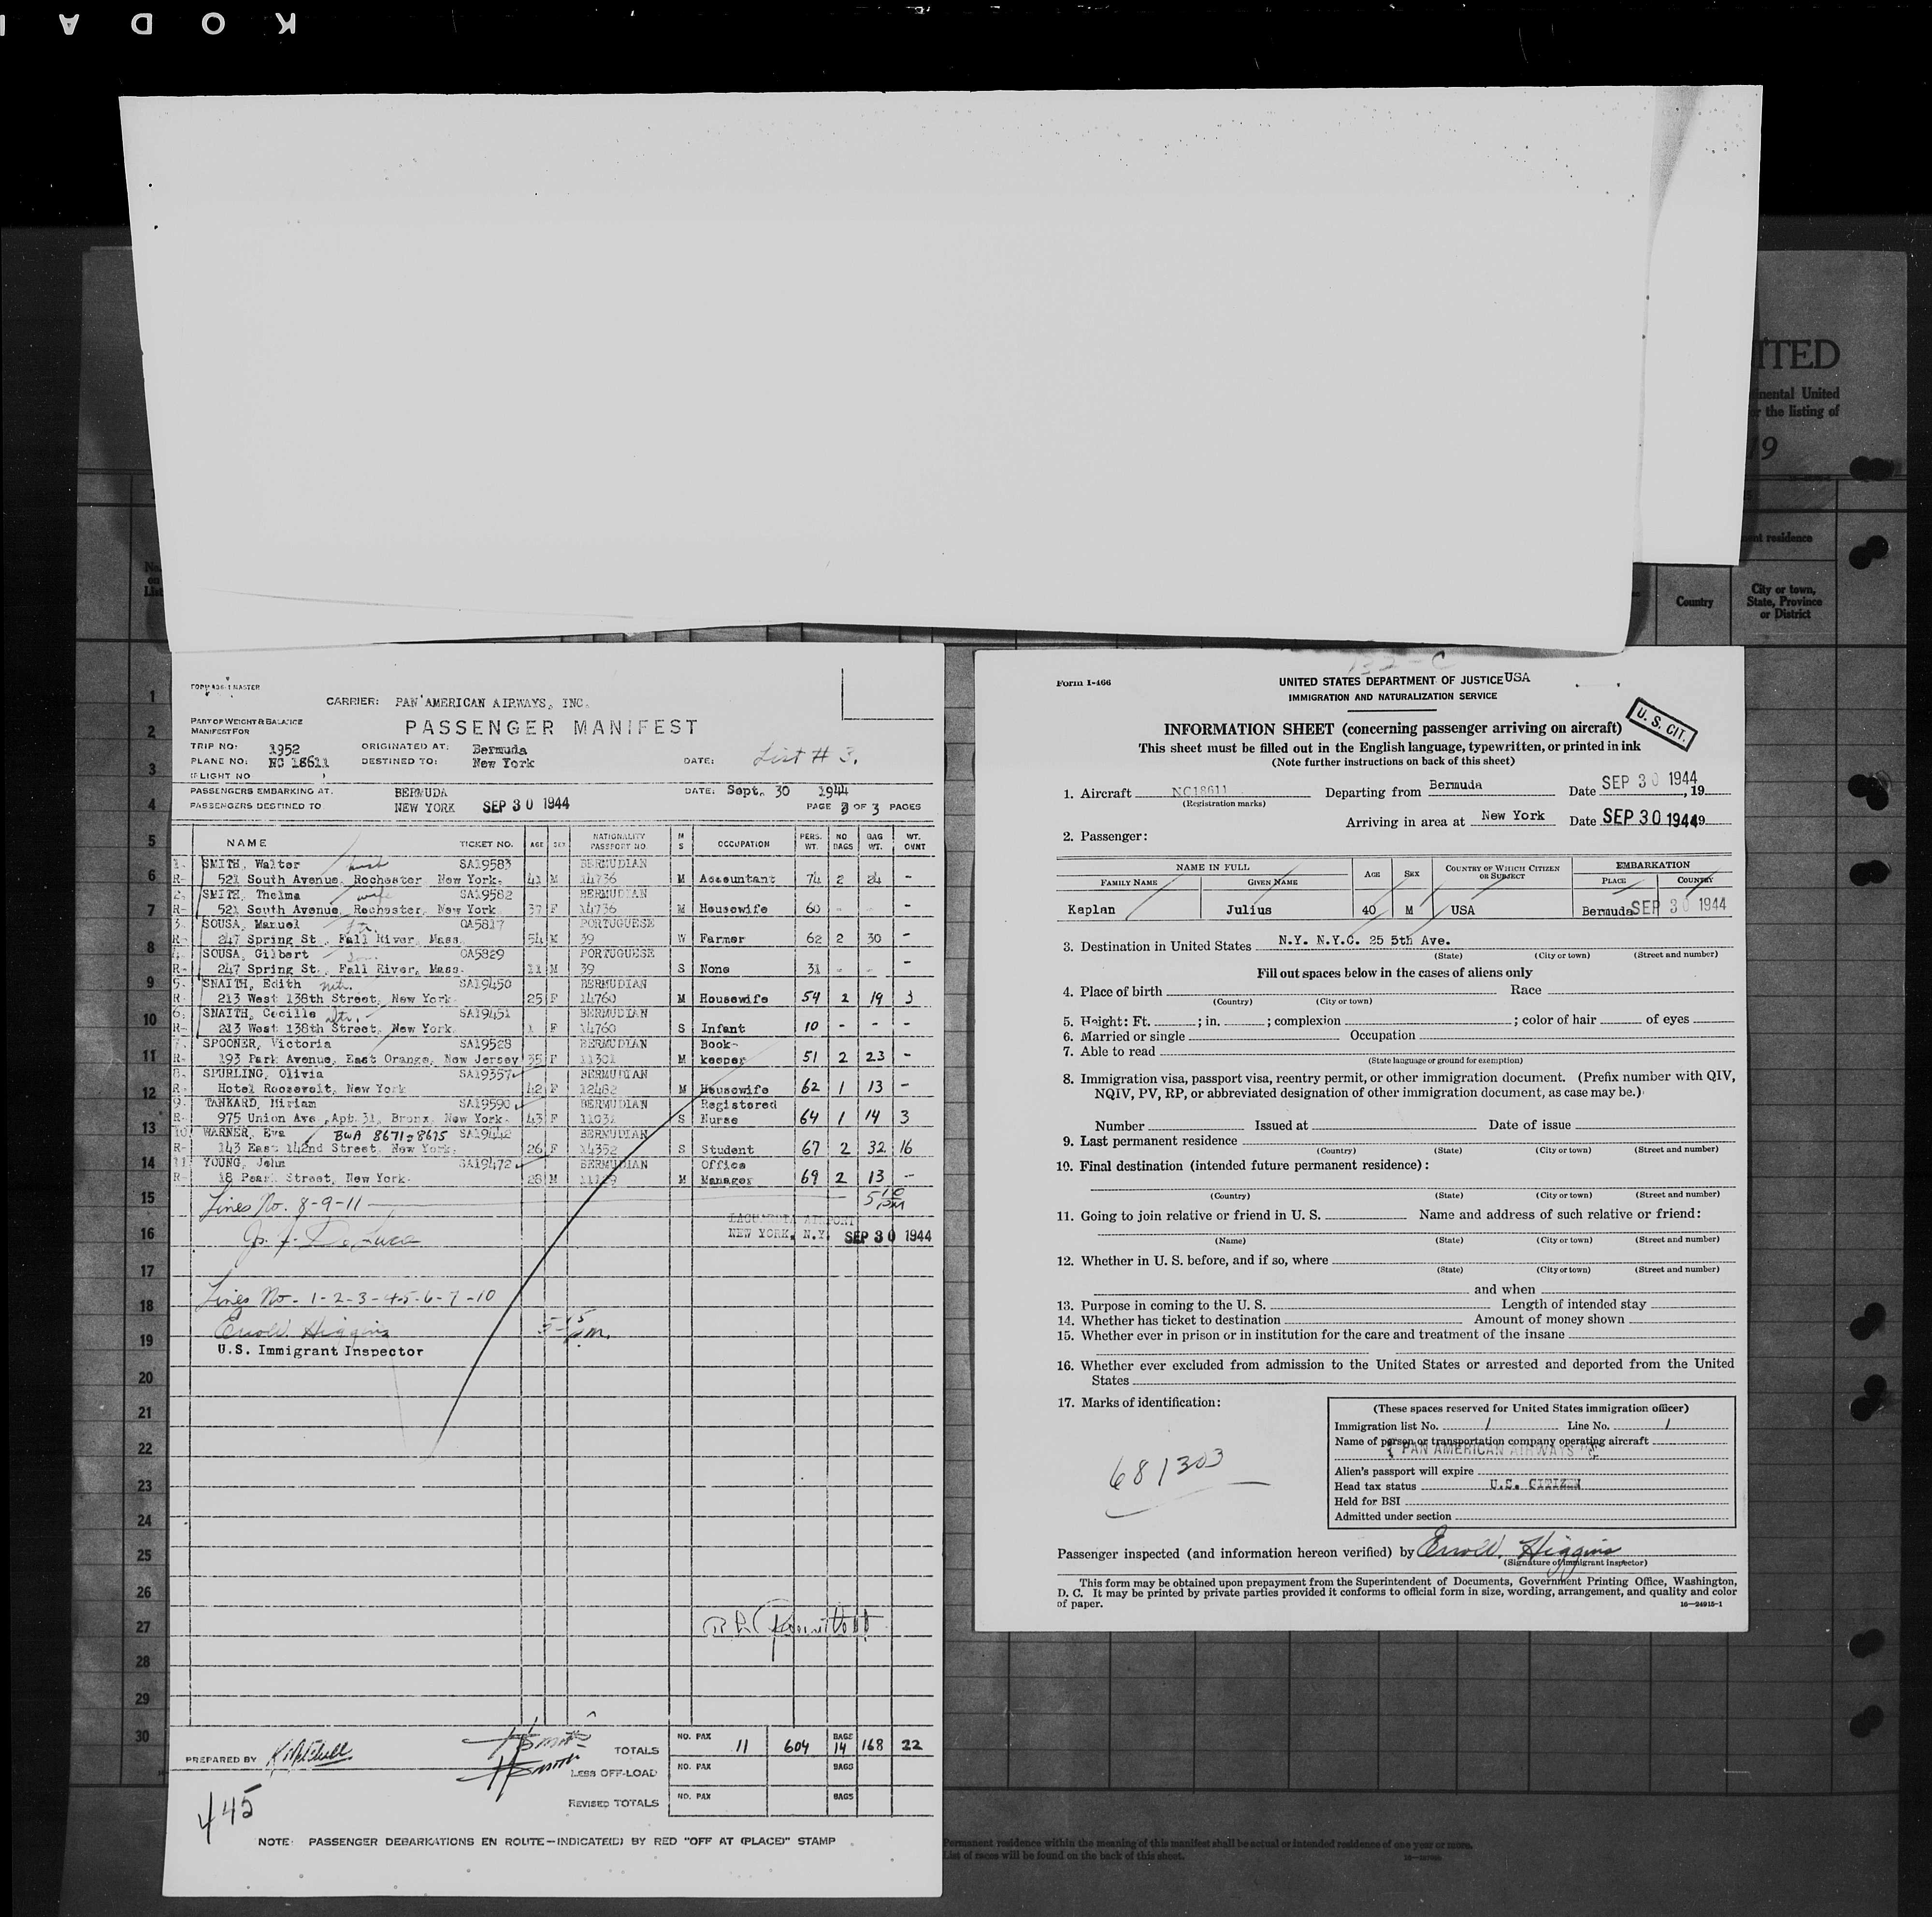 KODA
ITED
nental United
or the listing of
19
ent residence
No.
on
List
Country
City or town,
State, Province
or District
1
2
3
4
5
6
7
8
9
10
11
12
13
14
15
16
17
18
19
20
21
22
23
24
25
26
27
28
29
30
CARRIER: PAN AMERICAN AIRWAYS, INC.
PART OF WEIGHT & BALANCE
MANIFEST FOR
PASSENGER MANIFEST
TRIP NO: 1952 ORIGINATED AT: Bermuda
PLANE NO: NC 18611 DESTINED TO: New York DATE: List # 3.
(FLIGHT NO )
PASSENGERS EMBARKING AT: BERMUDA DATE: Sept. 30 1944
PASSENGERS DESTINED TO NEW YORK SEP 30 1944 PAGE 3 OF 3 PAGES
NAME TICKET NO. AGE SEX NATIONALITY PASSPORT NO. M S OCCUPATION PERS. WT. NO BAGS BAG WT. WT. OVNT
1. SMITH, Walter SA19583 BERMUDIAN
R- 521 South Avenue, Rochester, New York. 41 M 14736 M Accountant 74 2 24 -
2. SMITH, Thelma wife SA19582 BERMUDIAN
R- 521 South Avenue, Rochester, New York 37 F 14736 M Housewife 60 - -
3. SOUSA, Manuel OA5817 PORTUGUESE
R- 247 Spring St., Fall River, Mass. 54 M 39 W Farmer 62 2 30 -
4. SOUSA, Gilbert OA5829 PORTUGUESE
R- 247 Spring St., Fall River, Mass. 11 M 39 S None 31 - - -
5. SNAITH, Edith SA19450 BERMUDIAN
R- 213 West 138th Street, New York. 25 F 14760 M Housewife 54 2 19 3
6. SNAITH, Cecille SA19451 BERMUDIAN
R- 213 West 138th Street, New York. 1 F 14760 S Infant 10 - - -
7. SPOONER, Victoria SA19528 BERMUDIAN Book-
R- 193 Park Avenue, East Orange, New Jersey 35 F 11301 M keeper 51 2 23 -
8. SPURLING, Olivia SA19357 BERMUDIAN
R- Hotel Roosevelt, New York 42 F 12482 M Housewife 62 1 13 -
9. TANKARD, Miriam SA19590 BERMUDIAN Registered
R- 975 Union Ave., Apt. 31, Bronx, New York. 43 F 11031 S Nurse 64 1 14 3
10. WARNER, Eva BWA 8671-8675 SA19442 BERMUDIAN
R- 143 East 142nd Street, New York. 26 F 14352 S Student 67 2 32 16
11. YOUNG, John SA19472 BERMUDIAN Office
R- 18 Pearl Street, New York. 28 M M Manager 69 2 13 -
Lines No. 8-9-11 5 10 PM
Jos. F. DeLuca
LAGUARDIA AIRPORT
NEW YORK, N.Y. SEP 30 1944
Lines No. 1-2-3-4-5-6-7-10
Errold Higgins 5 15 pm.
U.S. Immigrant Inspector
PREPARED BY
TOTALS NO. PAX 11 604 BAGS 14 168 22
LESS OFF-LOAD NO. PAX BAGS
REVISED TOTALS NO. PAX BAGS
445
NOTE: PASSENGER DEBARKATIONS EN ROUTE—INDICATE(D) BY RED "OFF AT (PLACE)" STAMP
132-C
Form I-466
UNITED STATES DEPARTMENT OF JUSTICE USA
IMMIGRATION AND NATURALIZATION SERVICE
U. S. CIT.
INFORMATION SHEET (concerning passenger arriving on aircraft)
This sheet must be filled out in the English language, typewritten, or printed in ink
(Note further instructions on back of this sheet)
1. Aircraft NC18611 Departing from Bermuda Date SEP 30 1944, 19
(Registration marks)
Arriving in area at New York Date SEP 30 1944 9
2. Passenger:
NAME IN FULL AGE SEX COUNTRY OF WHICH CITIZEN OR SUBJECT EMBARKATION
FAMILY NAME GIVEN NAME PLACE COUNTRY
Kaplan Julius 40 M USA Bermuda SEP 30 1944
3. Destination in United States N.Y. N.Y.C. 25 5th Ave.
(State) (City or town) (Street and number)
Fill out spaces below in the cases of aliens only
4. Place of birth Race
(Country) (City or town)
5. Height: Ft. ; in. ; complexion ; color of hair of eyes
6. Married or single Occupation
7. Able to read
(State language or ground for exemption)
8. Immigration visa, passport visa, reentry permit, or other immigration document. (Prefix number with QIV,
NQIV, PV, RP, or abbreviated designation of other immigration document, as case may be.)
Number Issued at Date of issue
9. Last permanent residence
(Country) (State) (City or town) (Street and number)
10. Final destination (intended future permanent residence):
(Country) (State) (City or town) (Street and number)
11. Going to join relative or friend in U. S. Name and address of such relative or friend:
(Name) (State) (City or town) (Street and number)
12. Whether in U. S. before, and if so, where
(State) (City or town) (Street and number)
and when
13. Purpose in coming to the U. S. Length of intended stay
14. Whether has ticket to destination Amount of money shown
15. Whether ever in prison or in institution for the care and treatment of the insane
16. Whether ever excluded from admission to the United States or arrested and deported from the United
States
17. Marks of identification:
681303
(These spaces reserved for United States immigration officer)
Immigration list No. 1 Line No. 1
Name of person or transportation company operating aircraft
PAN AMERICAN AIRWAYS
Alien's passport will expire
Head tax status U.S. CITIZEN
Held for BSI
Admitted under section
Passenger inspected (and information hereon verified) by Errold Higgins
(Signature of immigrant inspector)
This form may be obtained upon prepayment from the Superintendent of Documents, Government Printing Office, Washington,
D. C. It may be printed by private parties provided it conforms to official form in size, wording, arrangement, and quality and color
of paper.
16—24915-1
Permanent residence within the meaning of this manifest shall be actual or intended residence of one year or more.
List of races will be found on the back of this sheet.